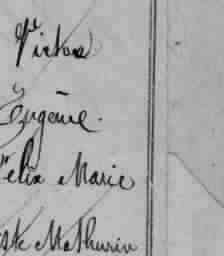 Victor
Eugène.
Félix Marie
Mathurin